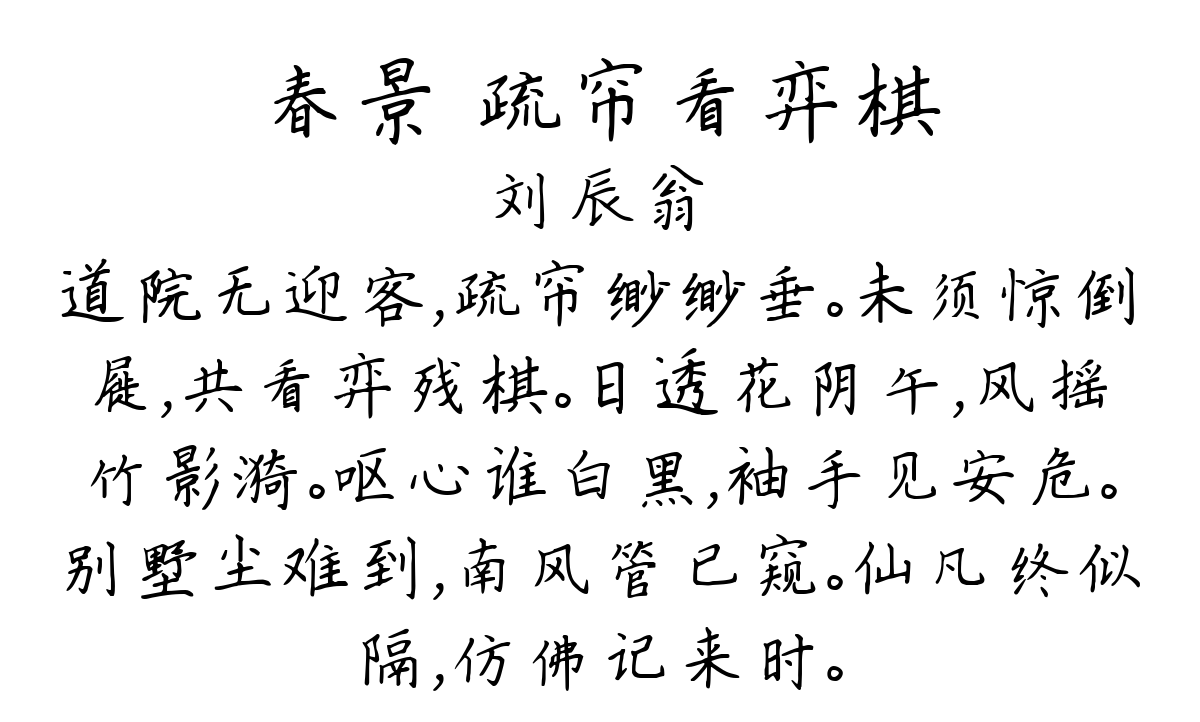 春景 疏帘看弈棋
刘辰翁
道院无迎客,疏帘缈缈垂。未须惊倒
屣,共看弈残棋。日透花阴午,风摇
竹影漪。呕心谁白黑,袖手见安危。
别墅尘难到,南风管已窥。仙凡终似
隔,仿佛记来时。